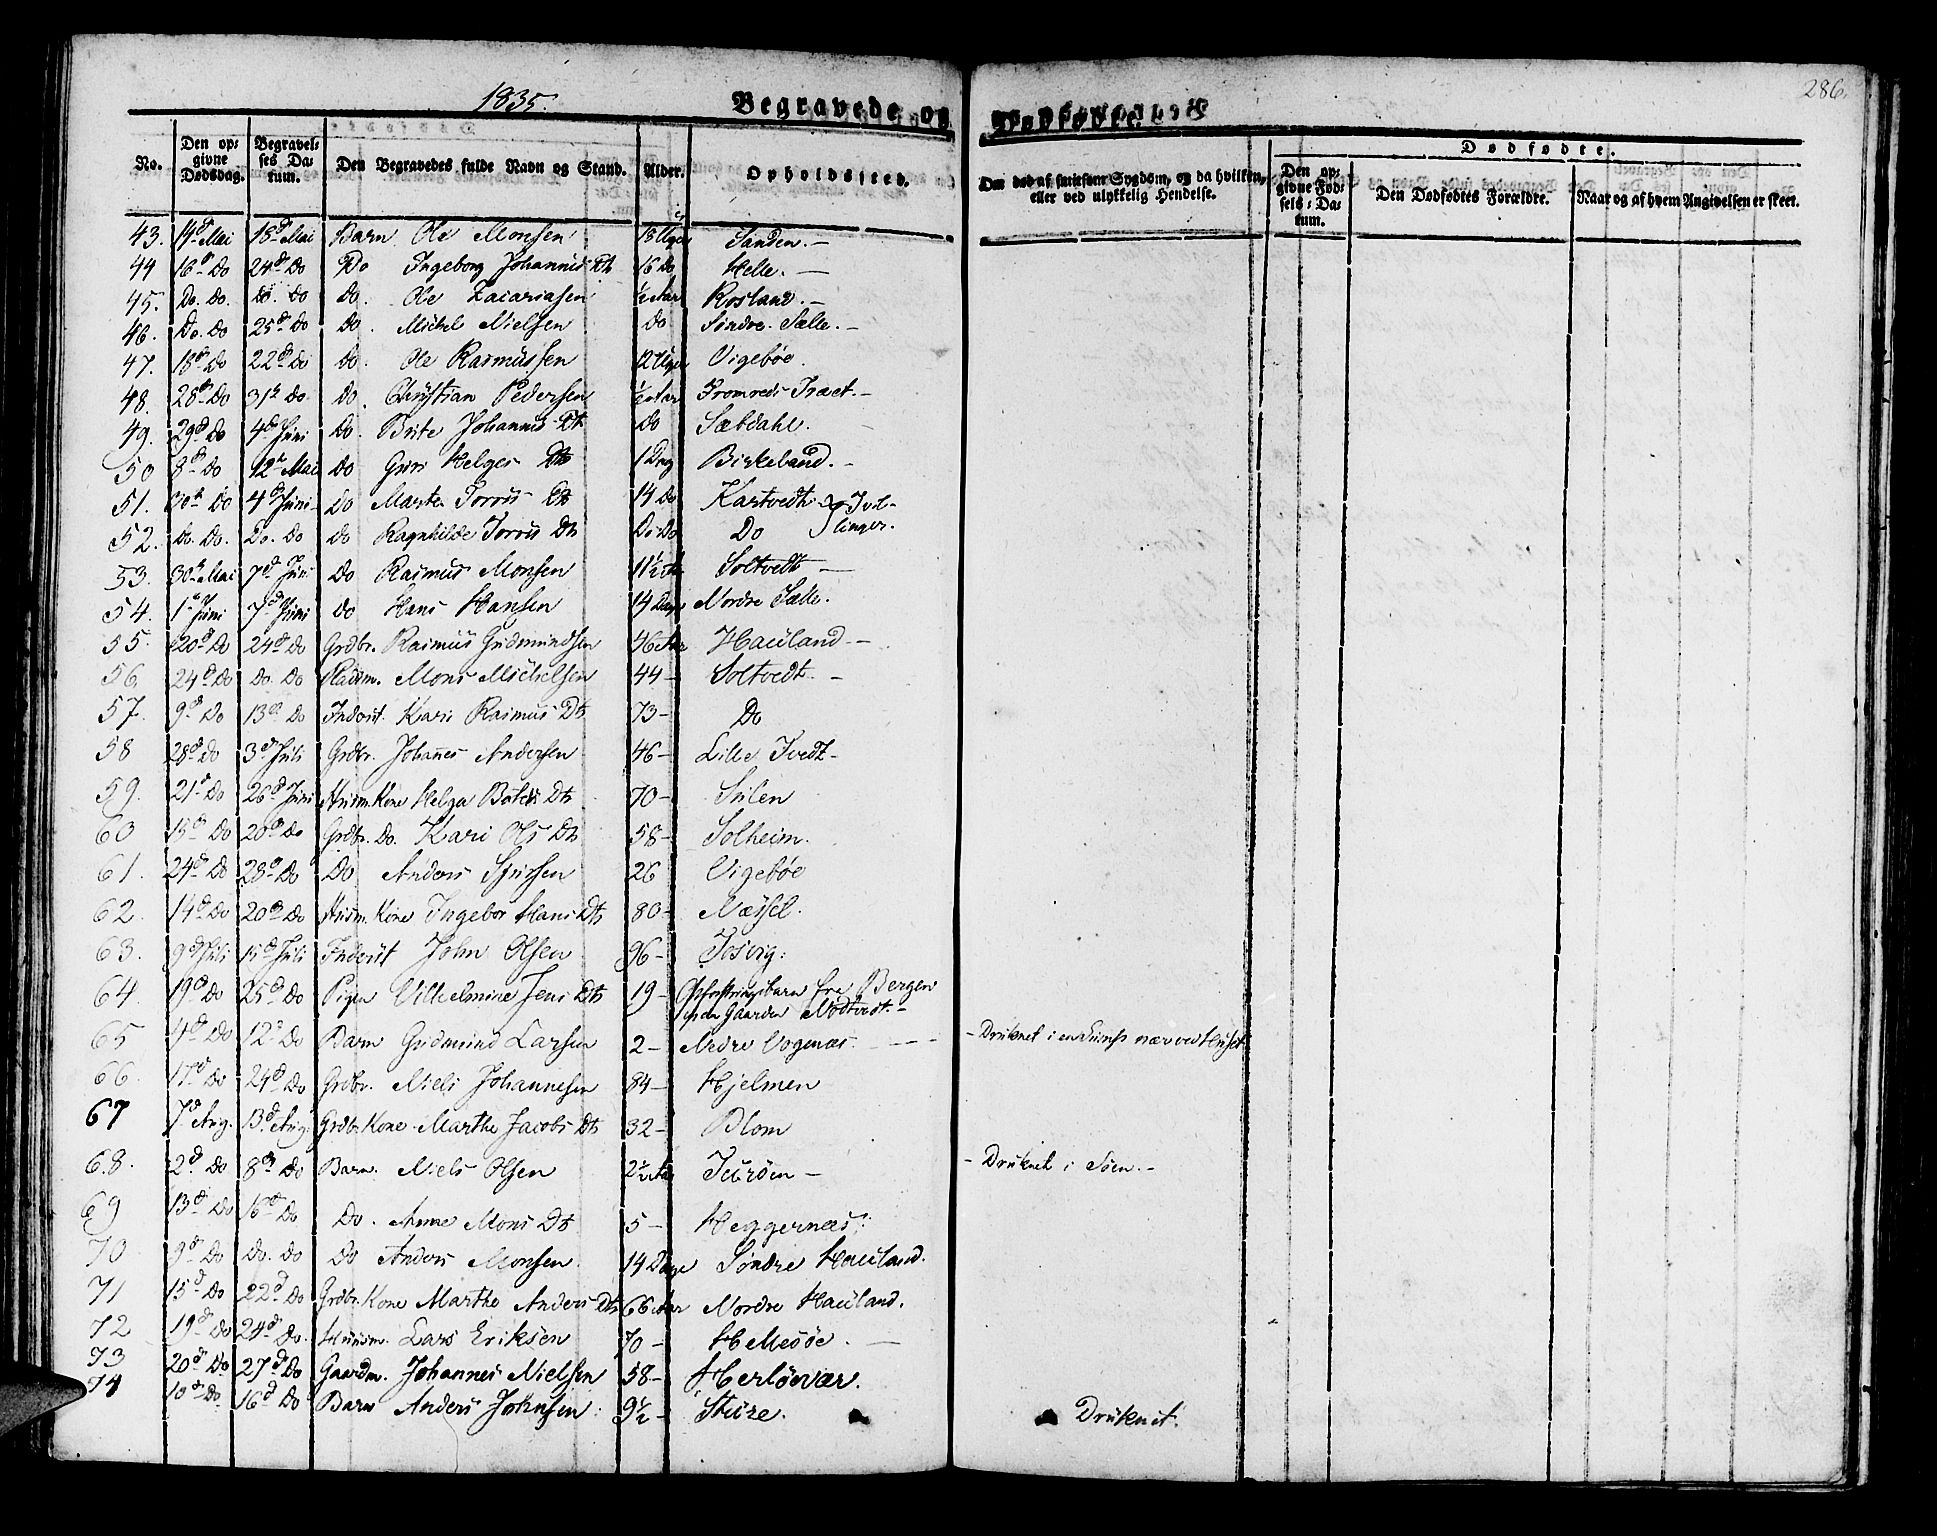 1835.
Begravede og Dødfødte.
286.
No.
Den opgivne Dødsdag.
Begravelses Datum.
Den Begravedes fulde Navn og Stand.
Alder.
Opholdssted.
Om død af smitsom Sygdom, og da hvilken, eller ved ulykkelig Hendelse.
Dødfødte.
Den opgivne Fødsels-Datum.
Den Dødfødtes Forældre.
Naar og af hvem Angivelsen er skeet.
43. 14d Mai 18d Mai Barn Ole Monsen 13 Uger Sanden. -
44 16d Do 24d Do Do Ingeborg Johannis Dtr 16 Do Helle. -
45. Do. Do. Do. Do Do. Ole Zacariasen ½ Aar Rosland. -
46. Do. Do 25d Do Do. Michel Nielsen Do Søndre Sælle. -
47. 18d Do 22d Do Do. Ole Rasmussen 12 Uger Vigebøe.
48. 28d Do 31t Do Do. Christian Pedersen ½ Aar Fromreds Træet. -
49. 29d Do 4d Juni Do. Brite Johannis Dtr Do Sætdahl.
50 8d Do 12t Mai Do Guri Helges Dtr 1 Dag Birkeland. -
51. 30te Do 4d Juni - Do Marte Torris Dtr 14 Do Kartvedt - Tvil-
52. Do. Do. Do. Do Do Ragnhilde Torris Dtr Do Do Do linger.
53. 30te Mai 7d Juni Do Rasmus Monsen 11½ Soltvedt -
54. 1te Juni 7d Juni Do Hans Hansen 14 Dage Nordre Sælle.
55. 20d Do 24d Do Grdbr. Rasmus Gudmundsen 46 Aar Hauland -
56. 24d Do Do. Do Pladsm. Mons Michelsen 44 - Soltvedt. -
57. 9d Do 13d Do Inderst. Kari Rasmus Dtr 73 - Do
58 28d Do 3d Juli Grdbr. Johannes Andersen 46 - Lille Tvedt -
59. 21d Do 26d Juni Huusm. Kone Helga Dtr 70 - Silen
60 15d Do 20d Do Grdbr. Do. Kari Ols Dtr 58 - Solheim.
61. 24d Do 28d Do Do Anders Sjursen 26 Vigebøe
62. 14d Do 20d Do Huusm. Kone Ingebor Hans Dtr 80 - Næssel.
63. 9d Juli 15d Juli Inderst John Olsen 96 - Tosvig:
64. 19d Do 25d Do Pigen Vilhelmine Jens Dtr 19 - Opfostringsbarn fra Bergen
paa Gaarden Nødtvedt. -
65 4d Do 12t Do Barn Gudmund Larsen 2 - Nedre Vogenæs. - - - - Druknet i en Sump nær ved Huset
66. 17d Do 24d Do Grdbr. Niels Johannesen 84 - Hjelmen
67 7d Aug. 13d Aug. Grdbr. Kone Marthe Jacobs Dtr 32 - Blom
68. 2d Do 8d Do Barn. Niels Olsen 2½ Aar Turøen - - Druknet i Søen. -
69 13d Do 16d Do Do. Anne Mons Dtr 5 - Heggernæs:
70 9d Do Do. Do Do Anders Monsen. 14 Dage Søndre Hauland.
71 15d Do 22d Do Grdbr. Kone Marthe Anders Dtr 66 Aar Nordre Hauland.
72 19d Do 24d Do. Huusm. Lars Eriksen 70 - Hellesøe. -
73 20d Do 27d Do Gaardm. Johannes Nielsen 58 - Herløevær.
74 10d Do. 16d Do Barn Anders Johnsen. 9½ - Sture. Druknet.